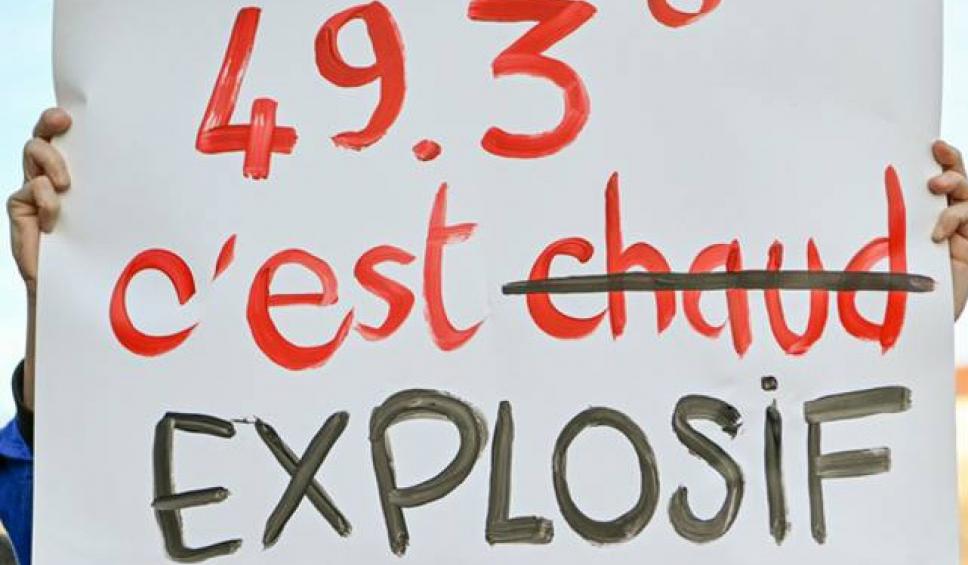 49.3°
c'est chaud
EXPLOSiF